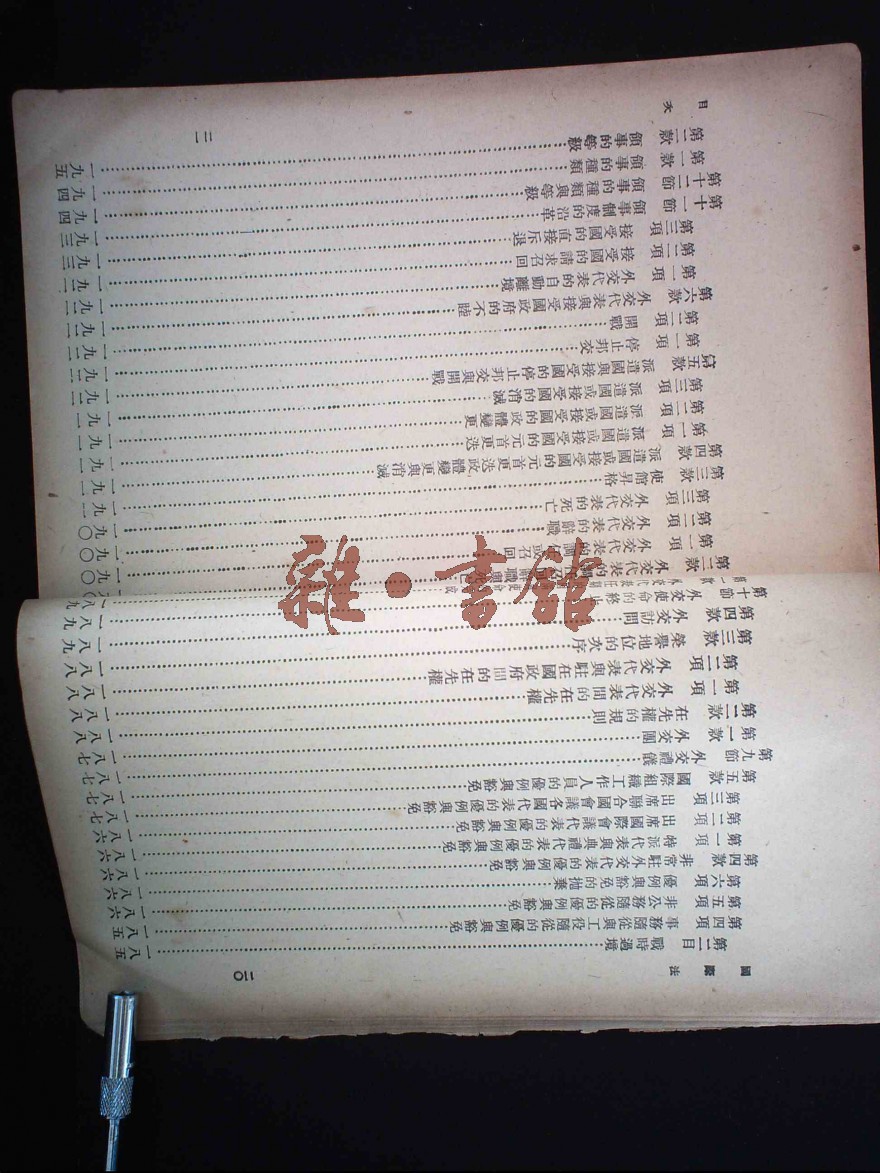 國際法
二〇
第二目 戰時過境 一八五
第四項 事務隨從與工役隨從的優例與豁免 一八五
第五項 非公務隨從的優例與豁免 一八六
第六項 優例與豁免的抛棄 一八六
第四款 非常駐外交代表的優例與豁免 一八六
第一項 特派代表與典禮代表的優例與豁免 一八六
第二項 出席國際會議代表的優例與豁免 一八七
第三項 出席聯合國會議各國代表的優例與豁免 一八七
第五款 國際組織工作人員的優例與豁免 一八七
第九節 外交禮儀 一八七
第一款 外交團 一八八
第二款 在先權的規則 一八八
第一項 外交代表間的在先權 一八八
第二項 外交代表與駐在國政府間的在先權 一八八
第三款 榮譽地位的次序 一八九
第四款 外交訪問 一八九
第十節 外交使命的終止
第二款 外交代表的 一九〇
第一項 外交代表的調任或召回 一九〇
第二項 外交代表的辭職 一九〇
第三項 外交代表的死亡 一九一
第三款 使館昇格 一九一
第四款 派遣國或接受國的元首更迭政體變更與消滅 一九一
第一項 派遣國或接受國的元首更迭 一九一
第二項 派遣國或接受國的政體變更 一九一
第三項 派遣國或接受國的消滅 一九二
第五款 派遣國與接受國的停止邦交與開戰 一九二
第一項 停止邦交 一九二
第二項 開戰 一九二
第六款 外交代表與接受國政府的不睦 一九二
第一項 外交代表的自動離境 一九二
第二項 接受國的請求召回 一九三
第三項 接受國的直接斥退 一九三
第十一節 領事制度的沿革 一九四
第十二節 領事的種類與等級 一九四
第一款 領事的種類 一九五
第二款 領事的等級
目次
二一
雜·書館